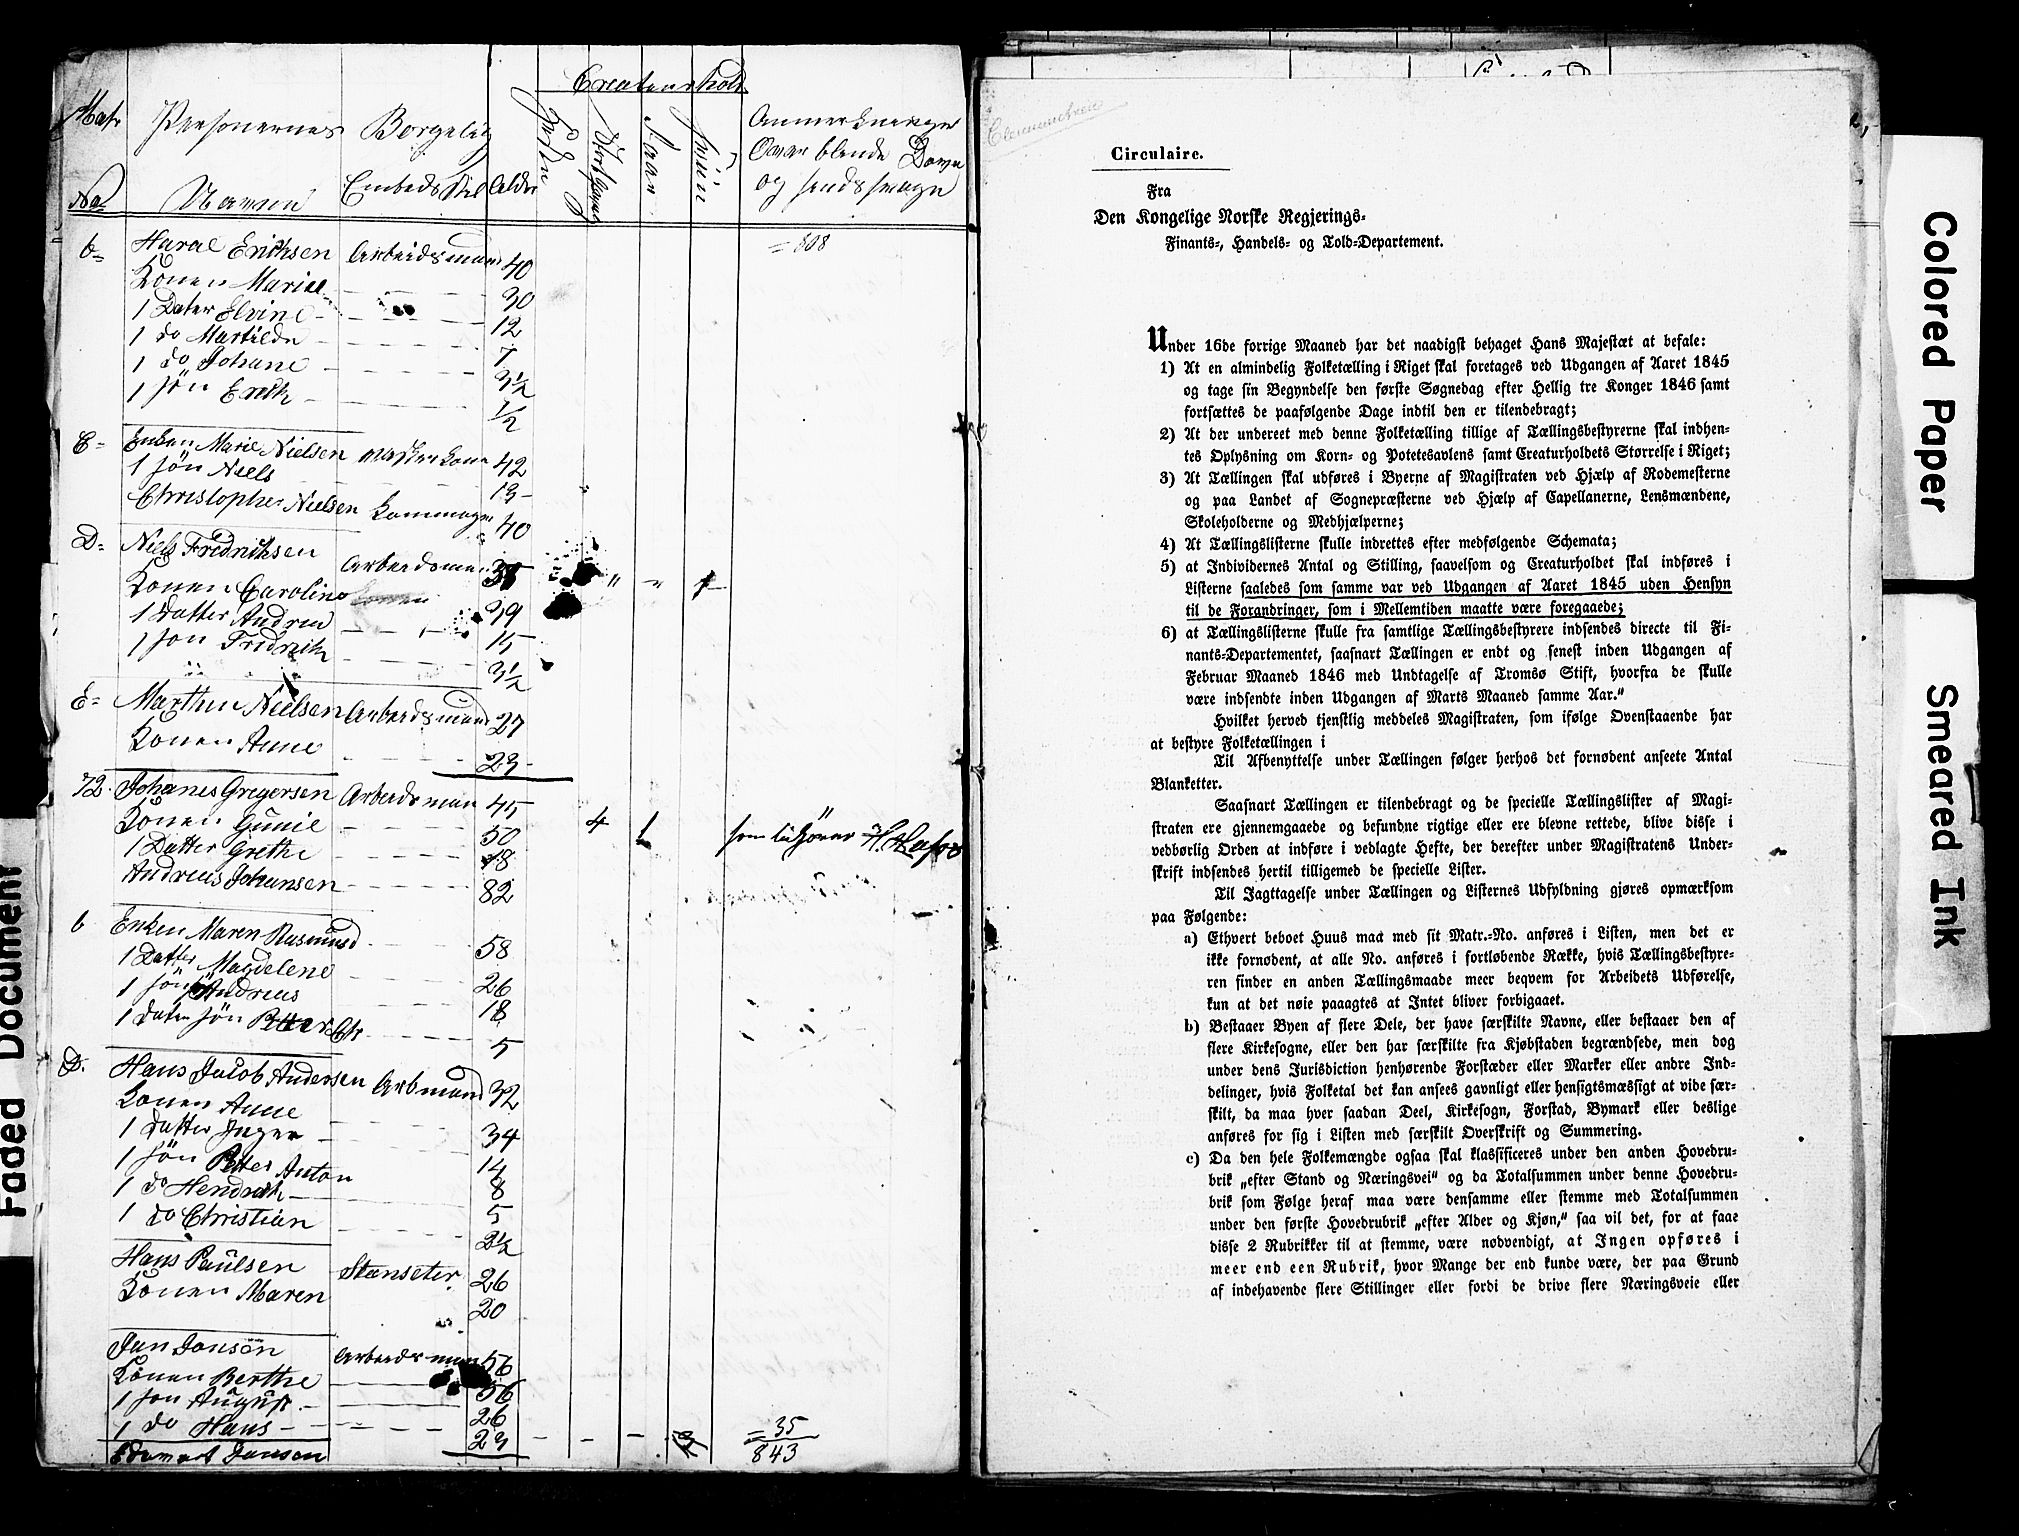 Creaturhold
Matr Personernes Borgelig Anmerkninger
No Navne Embeds Alder og
= 808
b= Erichsen Arbeidsmand 40
Konen Marie 30
1 Dater Elvine 12
1 do 7
1 do Johane 3½
1 Søn Erich ½
C= Enken Marie Nielsen 42
1 Søn Niels 13
Christopher Nielsen 40
D= Niels Fredriksen Arbeidsman
Konen Caroline
1 Datter Andrea 15
1 Søn Fredrich 3½
E= Marthin Nielsen Arbeidsmand 27
Konen Anne 23
72. Johanes Gregersen Arbeidsman 45
Konen Gunil 50 4
1 Datter Grethe 18
Andreas Johansen 82
b Enken Maren Rasmusd 58
1 Datter Magdelene 26
1 Søn Andreas 18
1 Søn Petter 5
D. Hans Jacob Andersen Arbmand 32
Konen Anne 34
1 Datter Inger 14
1 Søn Petter Anton 8
1 do Hendrich 5
1 do Christian 2½
Hans Paulsen 26
Konen Maren 20
Jan Jansen Arbeidsman 56
Konen Berthe 56
1 Søn August 26
1 do Hans 23 = 35
Jansen 843
Circulaire.
Fra
Den Kongelige Norske Regjerings=
Finants-, Handels- og Told-Departement.
Under 16de forrige Maaned har det naadigst behaget Hans Majestæt at befale:
1) At en almindelig Folketælling i Riget skal foretages ved Udgangen af Aaret 1845
og tage sin Begyndelse den første Søgnedag efter Hellig tre Konger 1846 samt
fortsættes de paafølgende Dage indtil den er tilendebragt;
2) At der undereet med denne Folketælling tillige af Tællingsbestyrerne skal indhen-
tes Oplysning om Korn- og Potetesavlens samt Creaturholdets Størrelse i Riget;
3) At Tællingen skal udføres i Byerne af Magistraten ved Hjælp af Rodemesterne
og paa Landet af Sognepræsterne ved Hjælp af Capellanerne, Lensmændene,
Skoleholderne og Medhjælperne;
4) At Tællingslisterne skulle indrettes efter medfølgende Schemata;
5) at Individernes Antal og Stilling, saavelsom og Creaturholdet skal indføres i
Listerne saaledes som samme var ved Udgangen af Aaret 1845 uden Hensyn
til de Forandringer, som i Mellemtiden maatte være foregaaede;
6) at Tællingslisterne skulle fra samtlige Tællingsbestyrere indsendes directe til Fi-
nants-Departementet, saasnart Tællingen er endt og senest inden Udgangen af
Februar Maaned 1846 med Undtagelse af Tromsø Stift, hvorfra de skulle
være indsendte inden Udgangen af Marts Maaned samme Aar."
Hvilket herved tjenstlig meddeles Magistraten, som ifølge Ovenstaaende har
at bestyre Folketællingen i
Til Afbenyttelse under Tællingen følger herhos det fornødent anseete Antal
Blanketter.
Saasnart Tællingen er tilendebragt og de specielle Tællingslister af Magi-
straten ere gjennemgaaede og befundne rigtige eller ere blevne rettede, blive disse i
vedbørlig Orden at indføre i vedlagte Hefte, der derefter under Magistratens Under-
skrift indsendes hertil tilligemed de specielle Lister.
Til Jagttagelse under Tællingen og Listernes Udfyldning gjøres opmærksom
paa Følgende:
a) Ethvert beboet Huus maa med sit Matr.-No. anføres i Listen, men det er
ikke fornødent, at alle No. anføres i fortløbende Række, hvis Tællingsbestyre-
ren finder en anden Tællingsmaade meer beqvem for Arbeidets Udførelse,
kun at det nøie paaagtes at Intet bliver forbigaaet.
b) Bestaaer Byen af flere Dele, der have særskilte Navne, eller bestaaer den af
flere Kirkesogne, eller den har særskilte fra Kjøbstaden begrændsede, men dog
under dens Jurisdiction henhørende Forstæder eller Marker eller andre Ind-
delinger, hvis Folketal det kan ansees gavnligt eller hensigtsmæssigt at vide sær-
skilt, da maa hver saadan Deel, Kirkesogn, Forstad, Bymark eller deslige
anføres for sig i Listen med særskilt Overskrift og Summering.
c) Da den hele Folkemængde ogsaa skal klassificeres under den anden Hovedru-
brik „efter Stand og Næringsvei" og da Totalsummen under denne Hovedru-
brik som Følge heraf maa være densamme eller stemme med Totalsummen
under den første Hovedrubrik „efter Alder og Kjøn," saa vil det, for at faae
disse 2 Rubrikker til at stemme, være nødvendigt, at Ingen opføres i
meer end een Rubrik, hvor Mange der end kunde være, der paa Grund
af indehavende flere Stillinger eller fordi de drive flere Næringsveie eller
Colored Paper
Smeared Ink
Faded Document